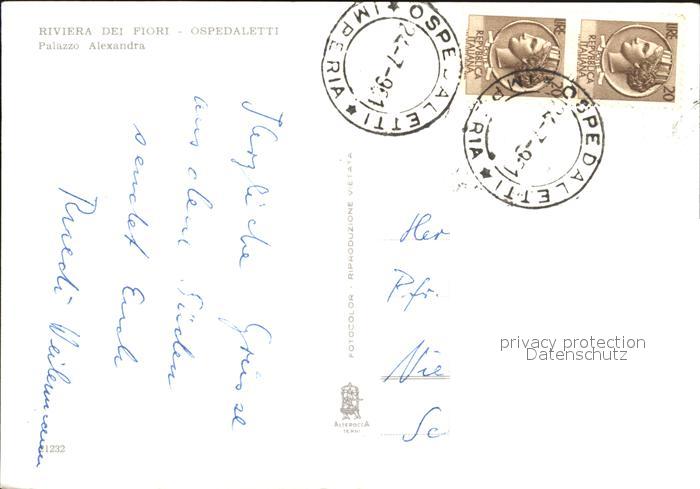 RIVIERA DEI FIORI - OSPEDALETTI
Palazzo Alexandra
Herzliche Grüsse
aus dem Süden
sendet Euch
Ruedi Weilenmann
1232
FOTOCOLOR - RIPRODUZIONE VIETATA
ALTEROCCA
TERNI
OSPEDALETTI ★ IMPERIA ★
24-7-961
LIRE 20
REPVBBLICA
ITALIANA
LIRE 20
REPVBBLICA
ITALIANA
OSPEDALETTI ★ IMPERIA
24-7-961
Her
Pfr.
Nie
Sc
privacy protection
Datenschutz